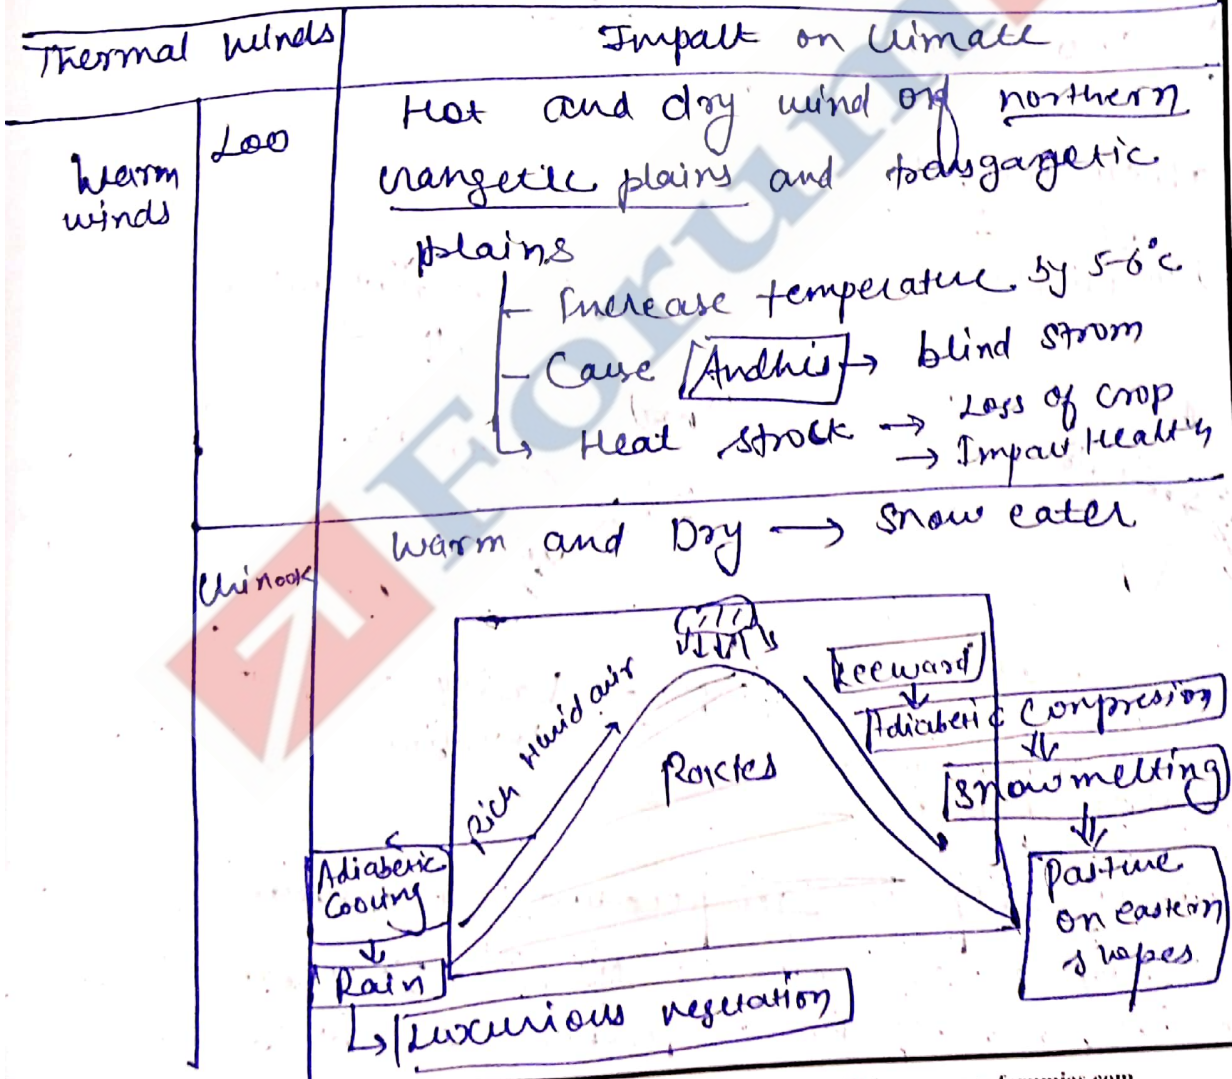 Thermal Winds
Impact on Climate
Warm
winds
Loo
Hot and dry wind of northern
Gangetic plains and transgagetic
plains
Increase temperature by 5-6°C
Cause Andhis → blind strom
Heat strock → Loss of crop
→ Impact Health
Chinook
Warm and Dry → Snow eater
Rich Humid air
Rockies
Leeward
Adiaberic Compression
Snow melting
Pasture
on eastern
slopes
Adiaberic
Cooling
Rain
Luxurious vegetation
Forum